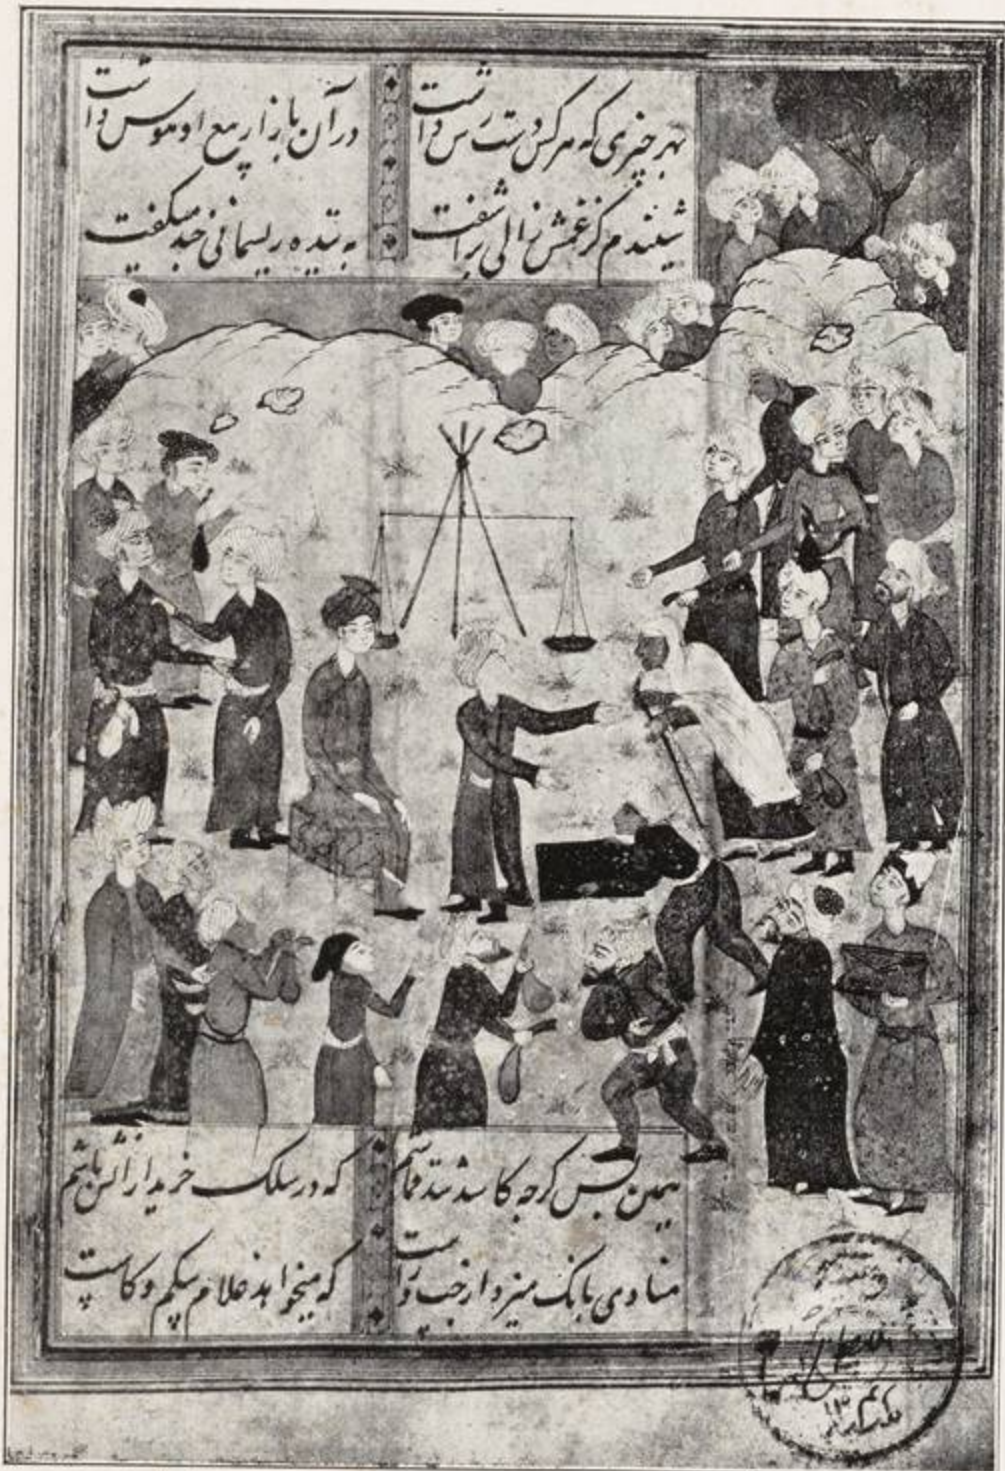 بهر چیزی که هر کس دست رس داشت در آن بازار بیع او هوس داشت
شنیدم کز غمش زالی برآشفت تنیده ریسمانی چند میگفت
همین بس گرچه کاسد شد قماشم که در سلک خریدارانش باشم
منادی بانگ میزد از چپ و راست که میخواهد غلام بیکم و کاست